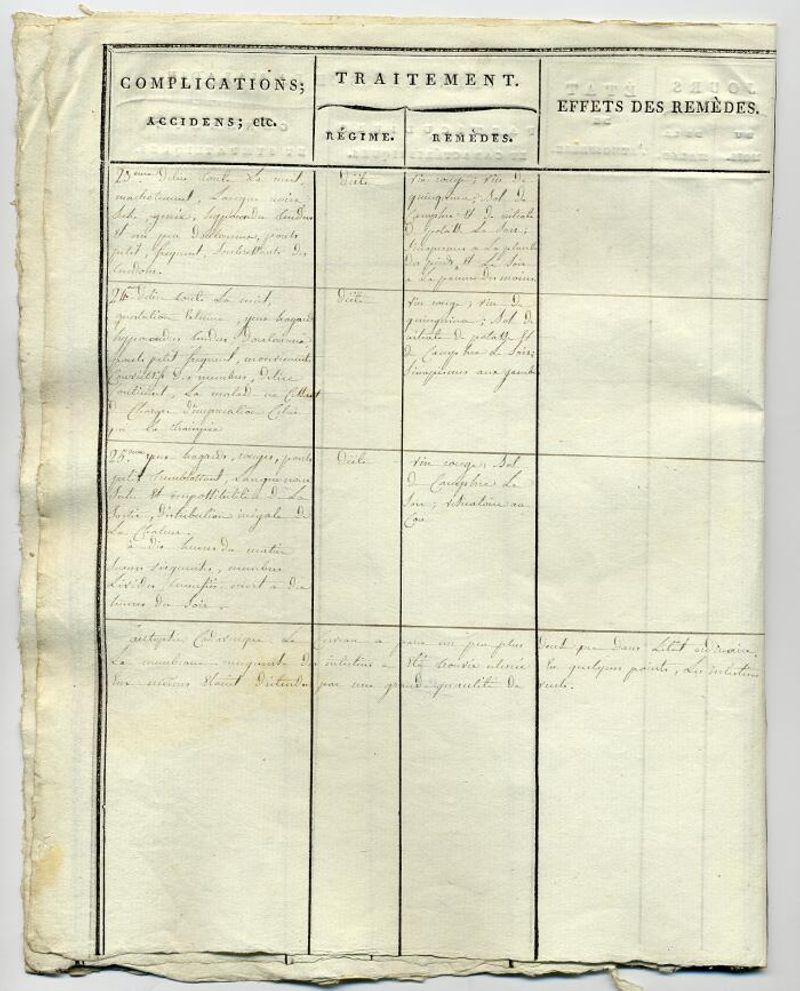 COMPLICATIONS;
ACCIDENS; etc.
TRAITEMENT.
RÉGIME.
REMÈDES.
EFFETS DES REMÈDES.
23eme Delire toute La nuit,
Langue noire
hypocondres tendus
et un peu Douloureux, pouls
petit, frequent, Soubresauts des
tendons.
Diète
vin rouge; vin de
quinquina; Bol de
Camphre et de nitrate
de potasse Le Soir;
Sinapismes a La plante
des pieds, et Le Soir
a La paume des mains.
24 Delire toute La nuit,
yeux hagards
hypocondres tendus Douloureux
pouls petit frequent, mouvements
Convulsifs Des membres, delire
Continuel, La malade
Diète
vin rouge; vin de
quinquina; Bol de
nitrate de potasse et
de Camphre Le Soir;
Sinapismes aux jambes
25eme yeux hagards, rouges, pouls
petit tremblottant, Langue noire
et impossibilité de La
Sortir, Distribution inégale de
La Chaleur.
à Dix heures du matin
membres
Livides mort a Dix
heures du Soir.
Diète
vin rouge; Bol
de Camphre Le
Soir; vésicatoire au
Cou
Autopsie Cadaverique. Le Cerveau a paru un peu plus que Dans L'état ordinaire,
La membrane muqueuse Des intestins a été trouvée en quelques points, Les intestins
étant Distendus par une grande quantité de vents.